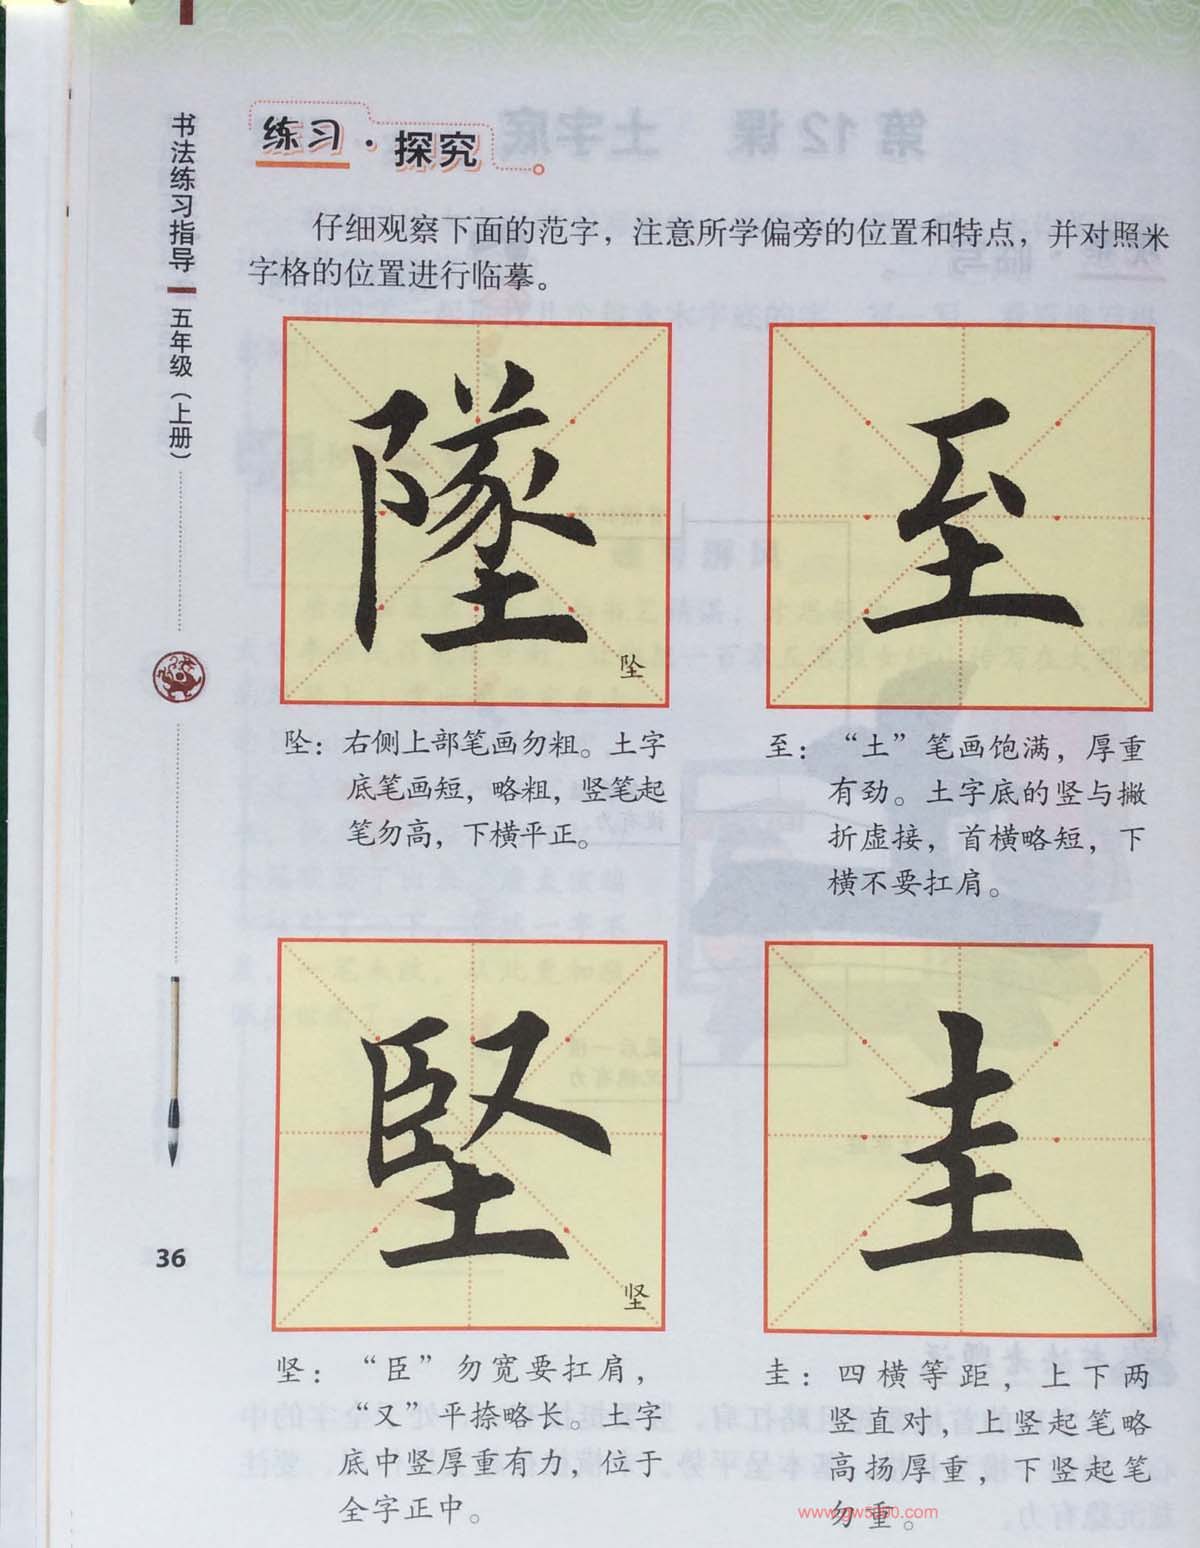 书法练习指导 五年级（上册）
练习·探究
仔细观察下面的范字，注意所学偏旁的位置和特点，并对照米
字格的位置进行临摹。
墜
坠
至
坠：右侧上部笔画勿粗。土字
底笔画短，略粗，竖笔起
笔勿高，下横平正。
至：“土”笔画饱满，厚重
有劲。土字底的竖与撇
折虚接，首横略短，下
横不要扛肩。
堅
坚
圭
坚：“臣”勿宽要扛肩，
“又”平捺略长。土字
底中竖厚重有力，位于
全字正中。
圭：四横等距，上下两
竖直对，上竖起笔略
高扬厚重，下竖起笔
勿重。
36